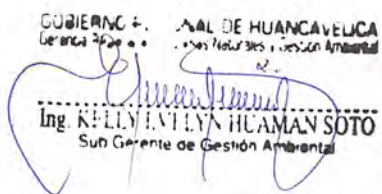 GOBIERNO REGIONAL DE HUANCAVELICA
Gerencia Recursos Naturales y Gestión Ambiental
Ing. KELLY EVELYN HUAMAN SOTO
Sub Gerente de Gestión Ambiental